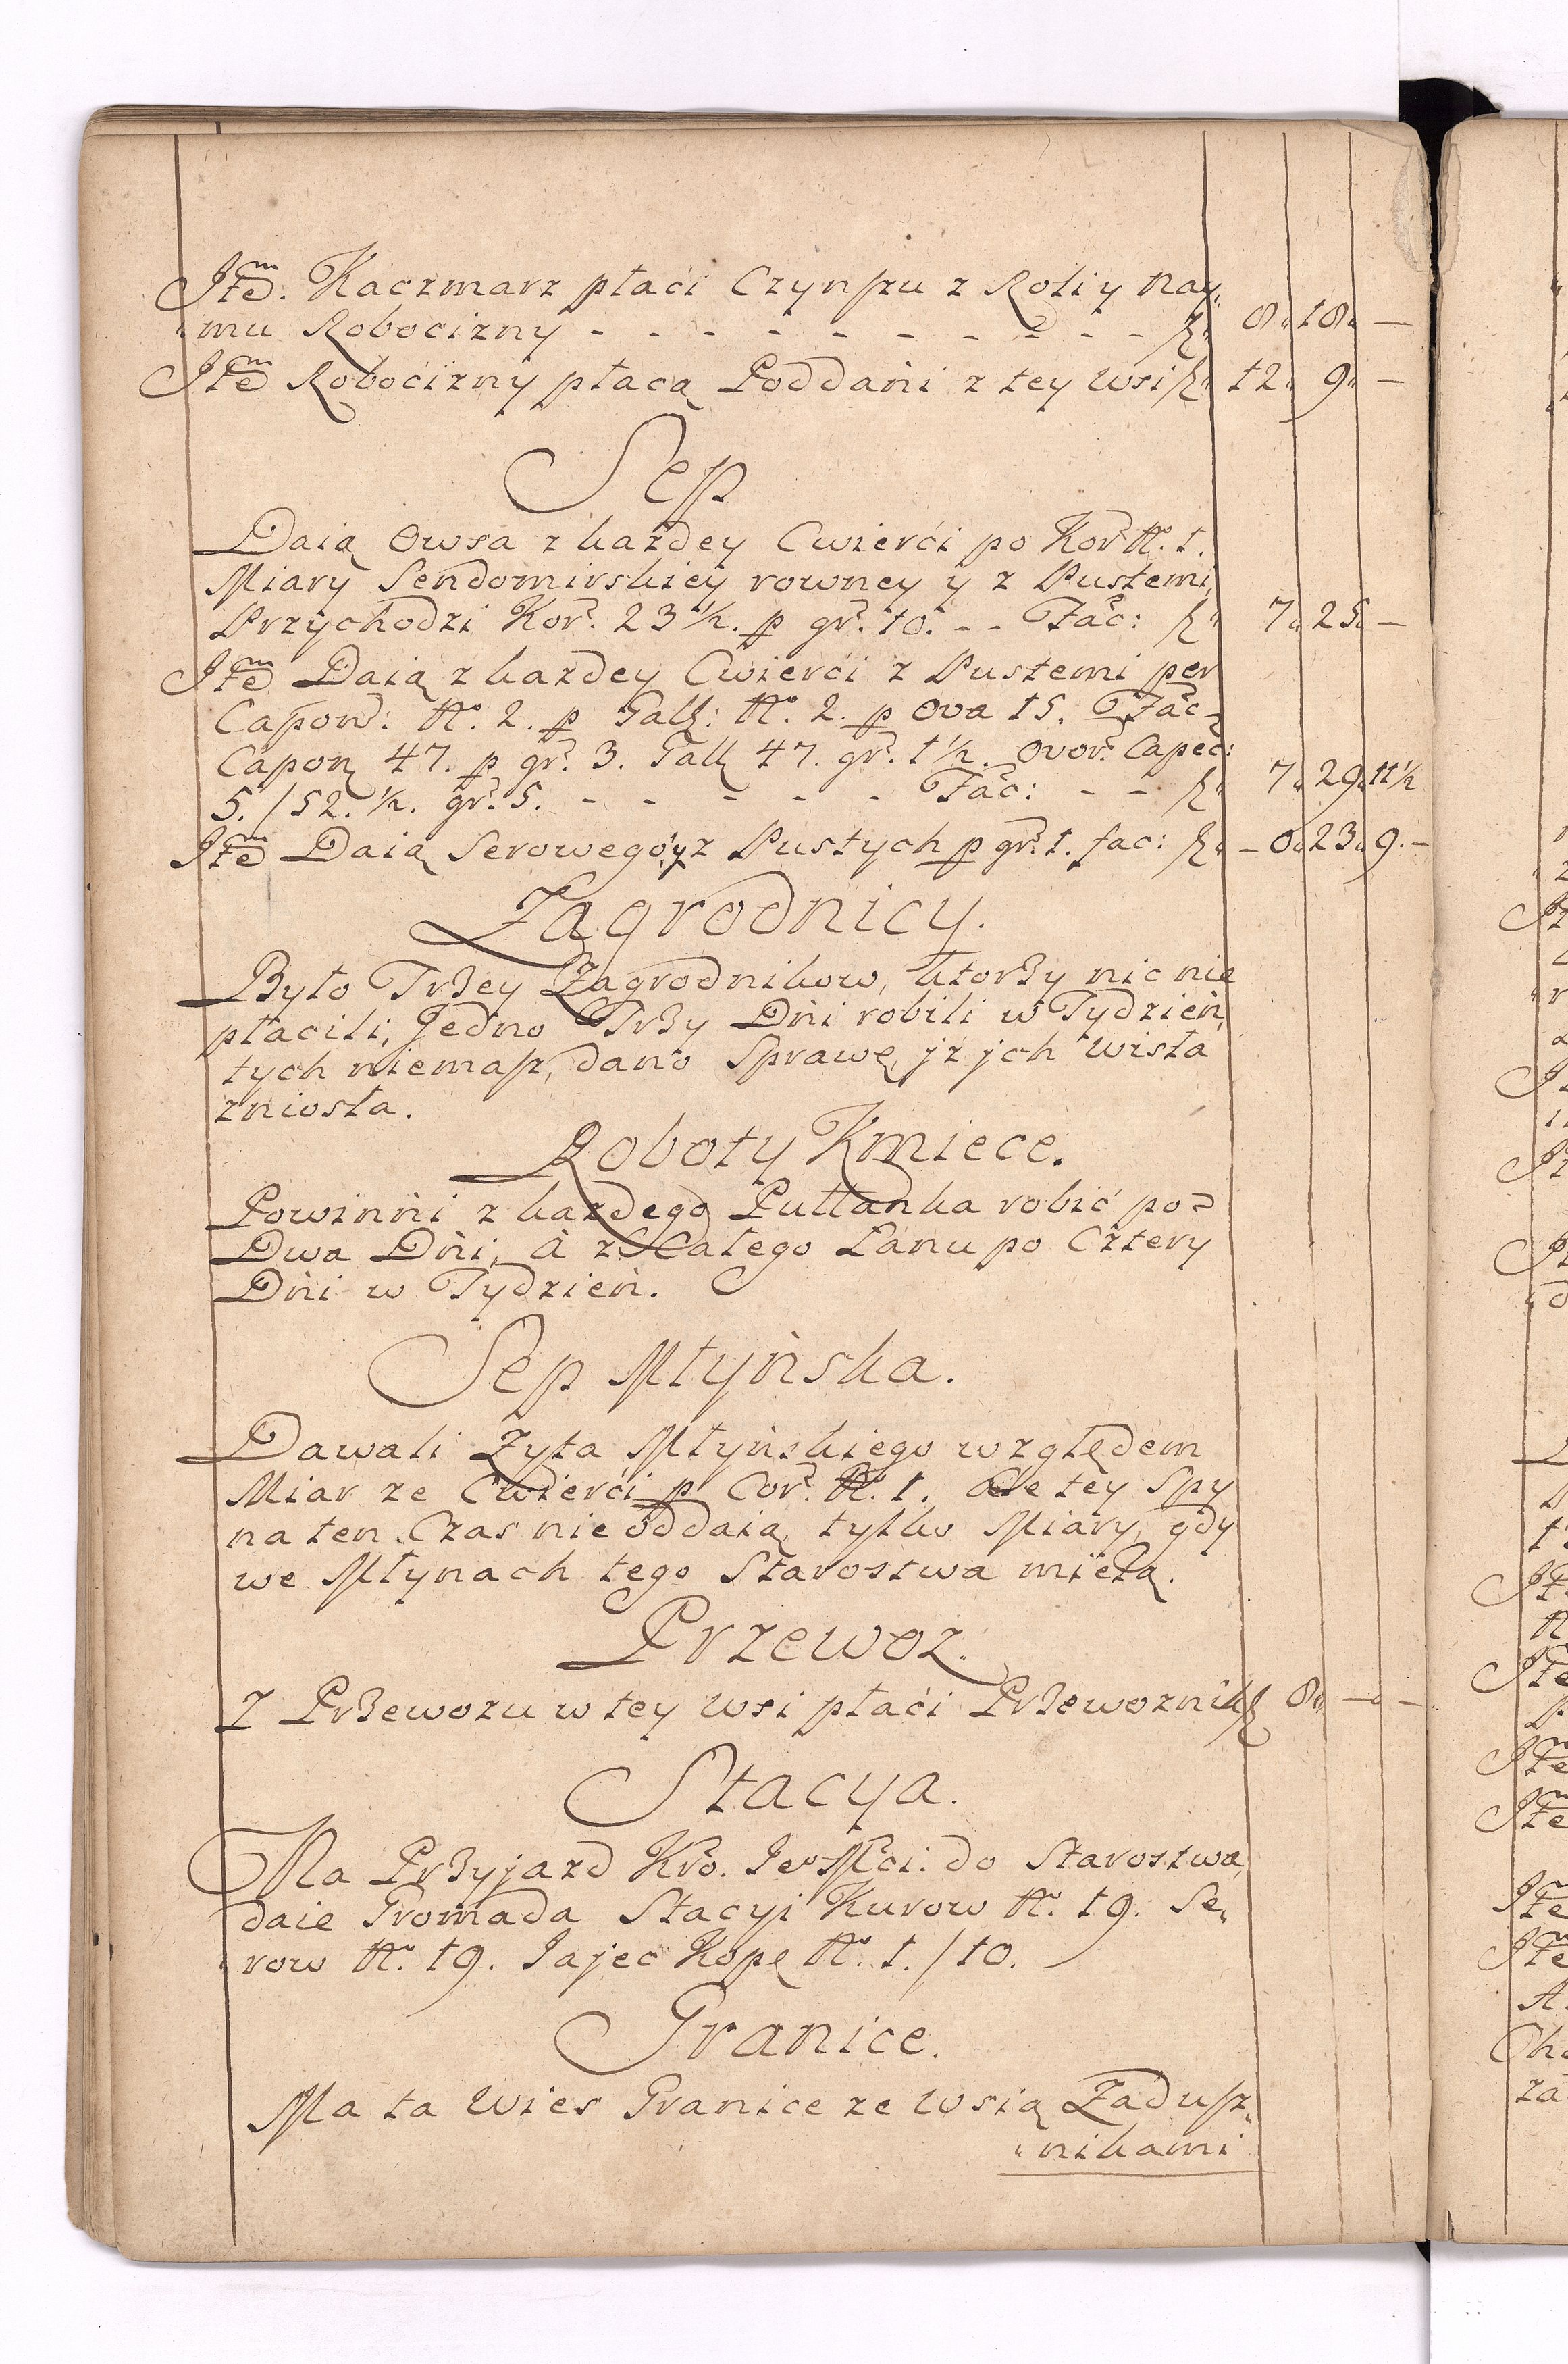 Itẽm. Kaczmarz płaći Czynszu z Roli y Nay„
„mu Robocizny - - - - - - - - - - f„ 8„ 18„ —
Itẽm Robocizny płacą Poddani z tey Wsi f„ 12„ 9„ —
Sep
Daią Owsa z każdey Cwierći po Kor. No. 1.
Miary Sendomirskiey rowney y z Pustemi,
Przychodzi Kor. 23 ½. p gr. 10. - - Fac: f„ 7„ 25„ —
Itẽm Daią z każdey Cwierci z Pustemi per
Capon: No. 2. p Gall: No. 2. p Ova 15. Fac:
Capon 47. p gr. 3. Gall 47. gr. 1½. Ovor. Capec:
5. / 52. ½. gr. 5. - - - - - - Fac: - - f„ 7„ 29„ 11½
Itẽm Daią Serowego, y z Pustych p gr. 1. fac: f„ — 0„ 23„ 9. —
Zagrodnicy.
Było Trzey Zagrodnikow, ktorzy nic nie
płacili, Jedno Trzy Dni robili w Tydzień,
tych niemasz, dano Sprawę, jż jch Wisła
zniosła.
Roboty Kmiece.
Powinni z każdego Pułłanka robić po
Dwa Dni, à z Całego Łanu po Cztery
Dni w Tydzien.
Sep Młyńska.
Dawali Zyta Młyńskiego względem
Miar ze Cwierći p Cor. No. 1. ale tey Spy
na ten Czas nie oddaią, tylko Miary, gdy
we Młynach tego Starostwa mielą.
Przewoz.
Z Przewozu w tey Wsi płaći Przewoznik f 8„ — —
Stacya.
Na Przyjazd Kro. Jeo Mci: do Starostwa,
daie Gromada Stacyi Kurow No. 19. Se„
row No. 19. Jajec Kopę No. 1. / 10.
Granice.
Ma ta Wies Granice ze Wsią Zadusz„
„nikami